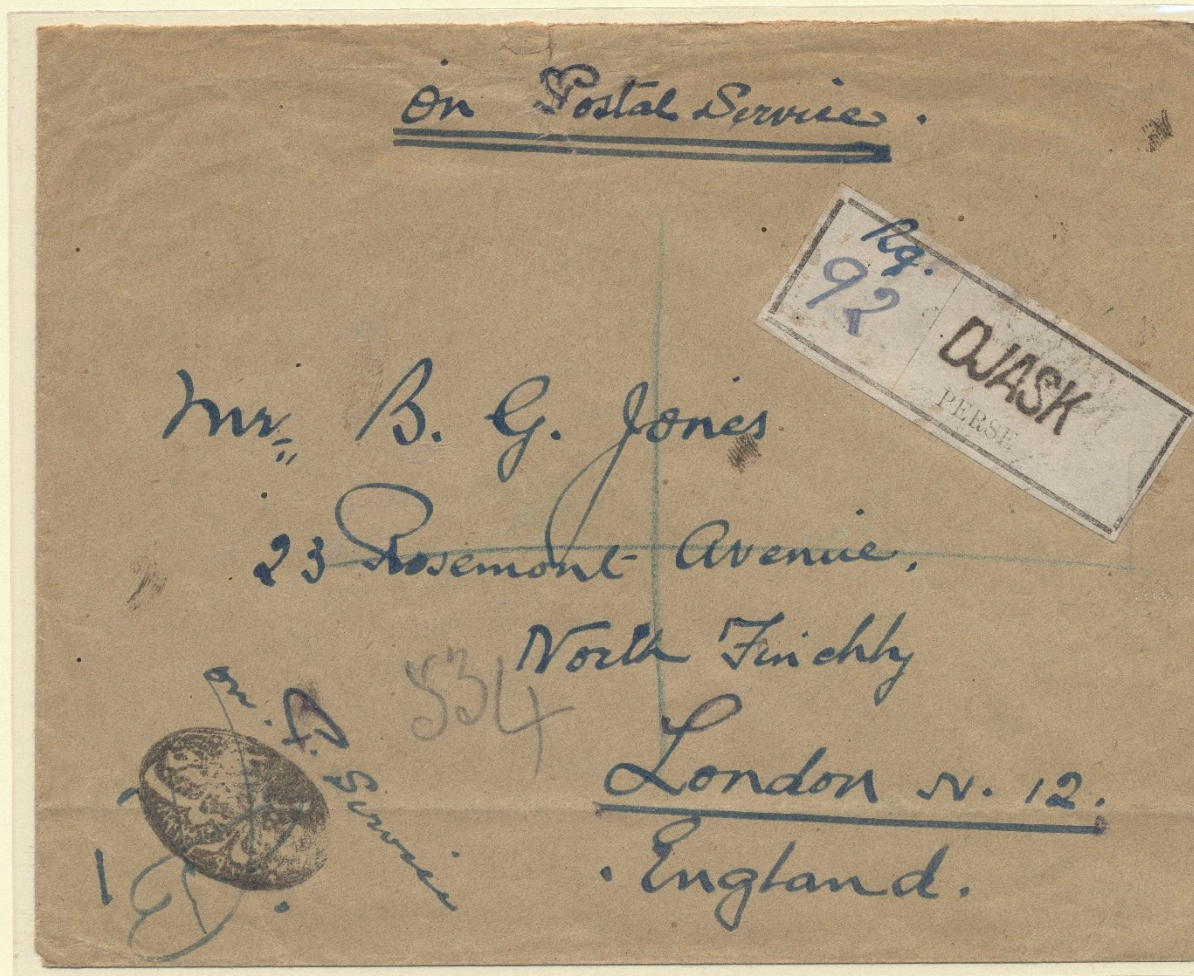 On Postal Service.
Rg.
92
DJASK
PERSE
Mr. B. G. Jones
23 Rosemont Avenue.
North Finchly
534
London N. 12.
England.
on. P. Service